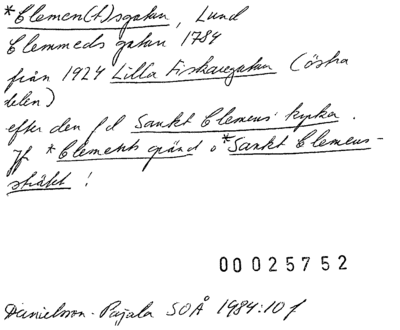 *Clemen(t)sgatan, Lund
Clemmeds gatan 1784
från 1924 Lilla Fiskaregatan (östra
delen)
efter den f d Sankt Clemens' kyrka.
Jf *Clements gränd o *Sankt Clemens-
sträkt!
00025752
Danielsson-Pajala SOÅ 1984:10 f